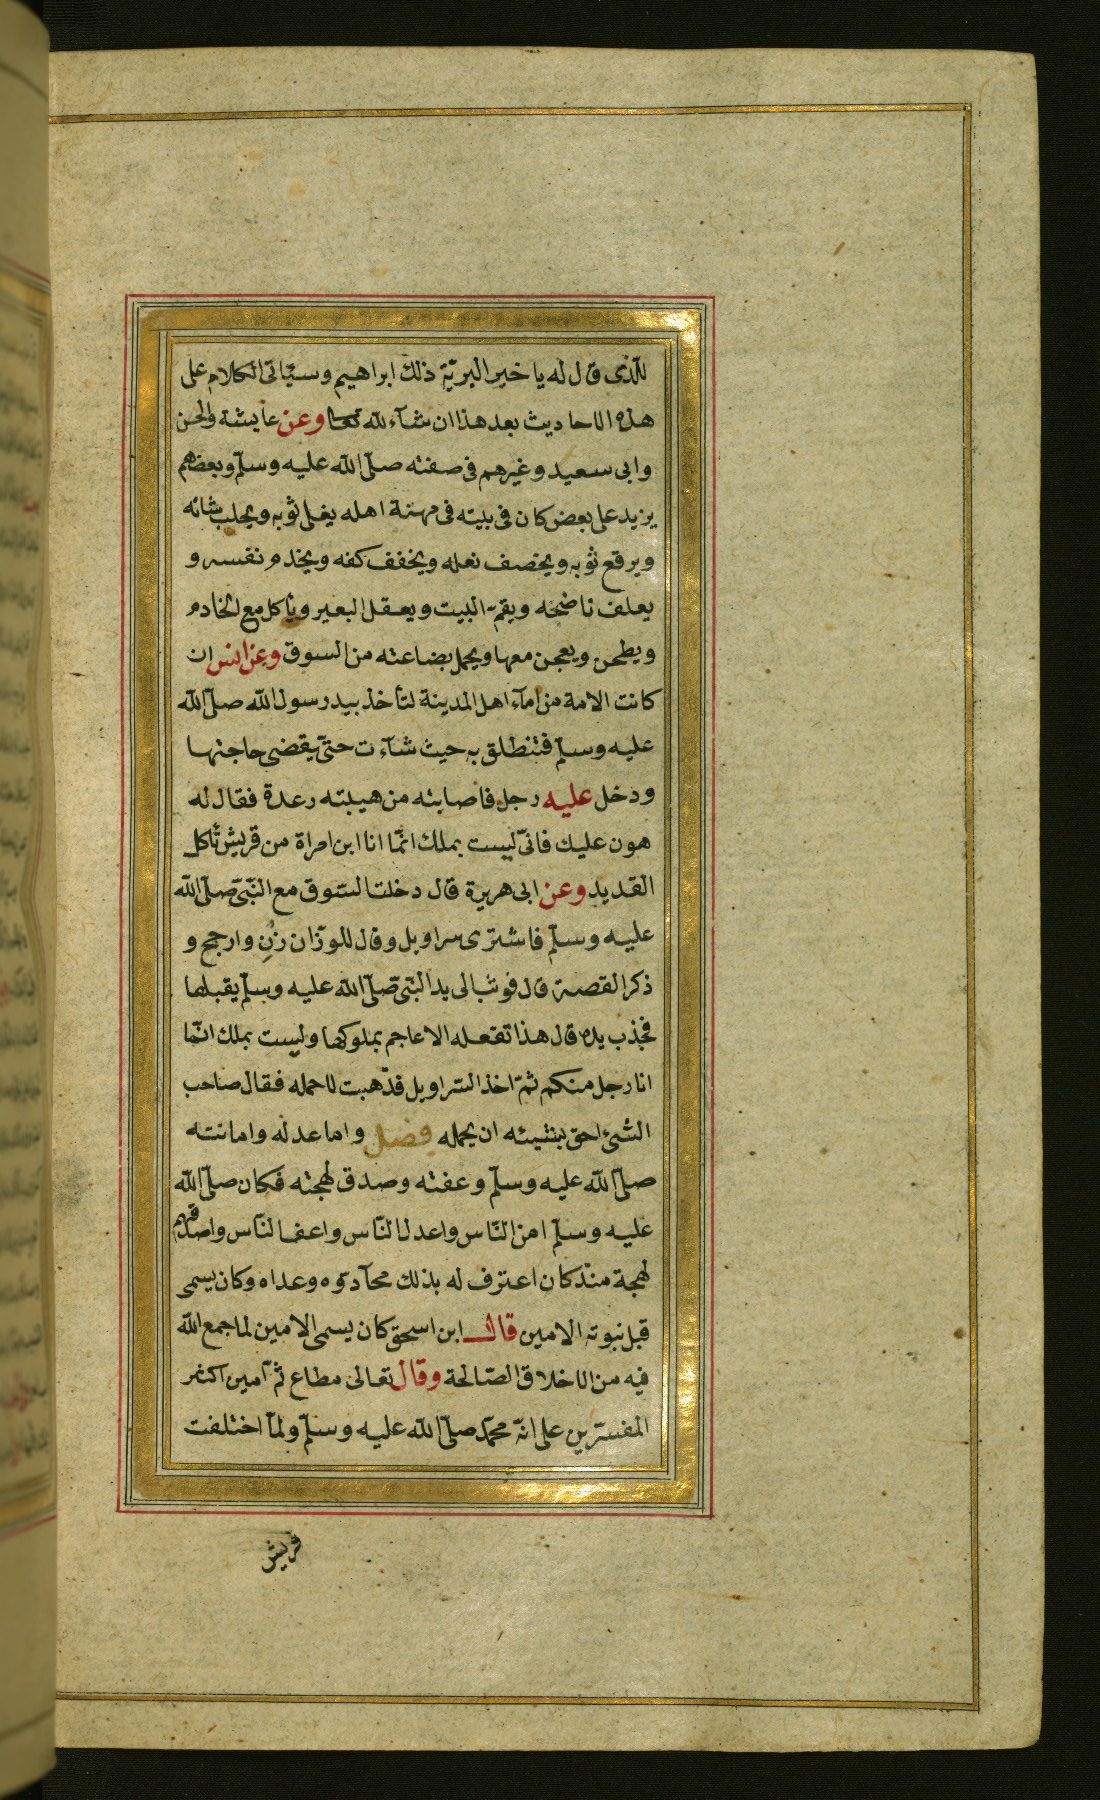 للّذى قال له يا خير البريّة ذلك ابراهيم وسيأتى الكلام على
هذه الاحاديث بعد هذا ان شآء لله تعا وعن عايشة والحسن
وابى سعيد وغيرهم فى صفته صلّى الله عليه وسلّم وبعضهم
يزيد على بعض كان فى بيته فى مهنة اهله يفلى ثوبه ويحلب شاته
ويرقع ثوبه ويخصف نعله ويخفف كفه ويخدم نفسه و
يعلف ناضحه ويقمّ البيت ويعقل البعير وياكل مع الخادم
ويطحن ويعجن معها ويحمل بضاعته من السوق وعن انس ان
كانت الامة من امآء اهل المدينة لتأخذ بيد رسول الله صلّى الله
عليه وسلّم فتنطلق به حيث شآءت حتّى يقضى حاجتها
ودخل عليه رجل فاصابته من هيبته رعدة فقال له
هون عليك فانّى ليست بملك انّما انا ابن امراة من قريش تأكل
القديد وعن ابى هريرة قال دخلت السّوق مع النّبىّ صلّى الله
عليه وسلّم فاشترى سراويل وقال للوزّان زِن وارجح و
ذكر القصة قال فوثب الى يد النّبىّ صلّى الله عليه وسلّم يقبلها
فجذب يده قال هذا تفعله الاعاجم بملوكها وليست بملك انّما
انا رجل منكم ثمّ اخذ السّراويل فذهبت لاحمله فقال صاحب
الشّئ احق بشيئه ان يحمله فصل واما عدله وامانته
صلّى الله عليه وسلّم وعفته وصدق لهجته فكان صلّى الله
عليه وسلّم امن النّاس واعدل النّاس واعف النّاس واصدقهم
لهجة منذ كان اعترف له بذلك محآدّوه وعداه وكان يسمى
قبل نبوته الامين قال ابن اسحق كان يسمى الامين لما جمع الله
فيه من الاخلاق الصّالحة وقال تعالى مطاع ثمّ امين اكثر
المفسّرين على انّه محمّد صلّى الله عليه وسلّم ولمّا اختلفت
قريش